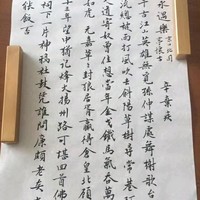 永遇樂 京口北固亭懷古
辛棄疾
千古江山英雄無覓孫仲謀處舞榭歌台
風流總被雨打風吹去斜陽草樹尋常巷陌
人道寄奴曾住想當年金戈鐵馬氣吞萬里
如虎元嘉草草封狼居胥贏得倉皇北顧
四十三年望中猶記烽火揚州路可堪回首佛
狸祠下一片神鴉社鼓憑誰問廉頗老矣尚
能飯否